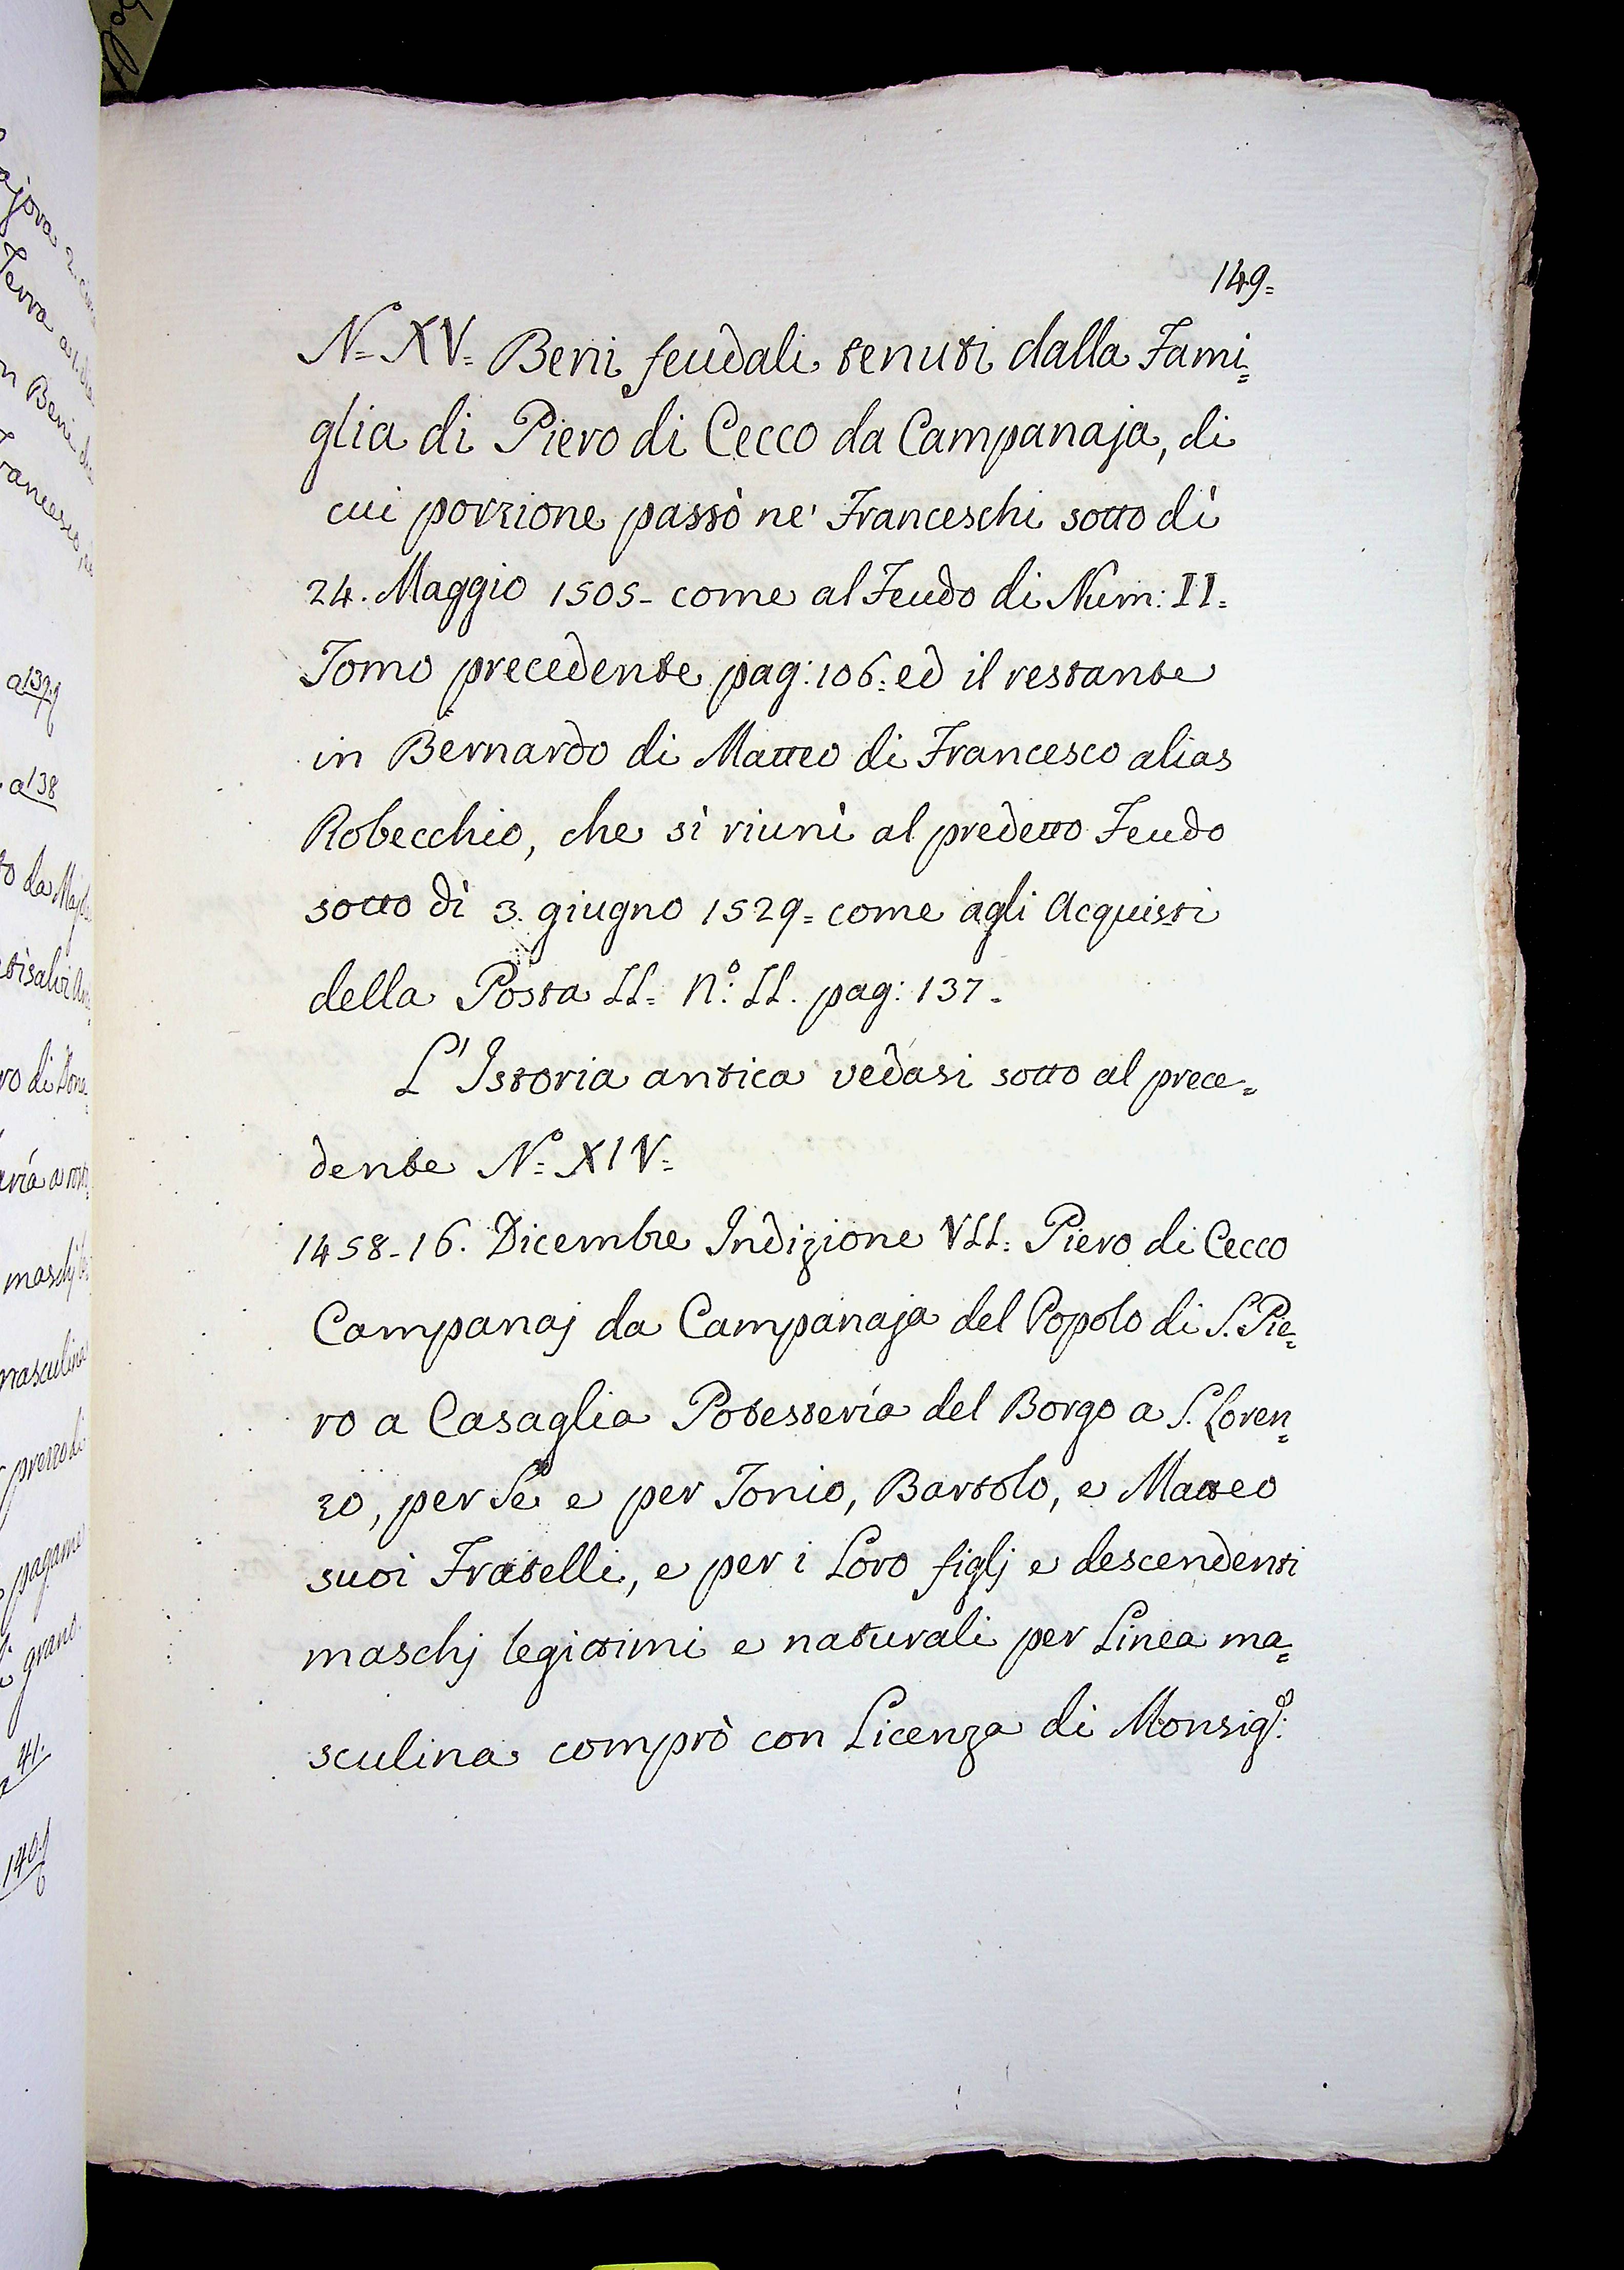 149=
N=° XV= Beni feudali tenuti dalla Fami=
glia di Piero di Cecco da Campanaja, di
cui porzione passò ne' Franceschi sotto dì
24. Maggio 1505- come al Feudo di Num: II=
Tomo precedente pag: 106: ed il restante
in Bernardo di Matteo di Francesco alias
Robecchio, che si riunì al predetto Feudo
sotto dì 3. giugno 1529= come agli Acquisti
della Posta II= N.° II. pag: 137.
L'Istoria antica vedasi sotto al prece=
dente N=° XIV=
1458-16. Dicembre Indizione VII= Piero di Cecco
Campanaj da Campanaja del Popolo di S. Pie=
ro a Casaglia Potestería del Borgo a S. Loren=
zo, per Se e per Tonio, Bartolo, e Matteo
suoi Fratelli, e per i Loro figlj e descendenti
maschj legittimi e naturali per Linea ma=
sculina comprò con Licenza di Monsig.e:
a 139
a 138
to da Maj
ro di Dona=
maschj
masculina
prezzo di
pagame
grano.
41.
140